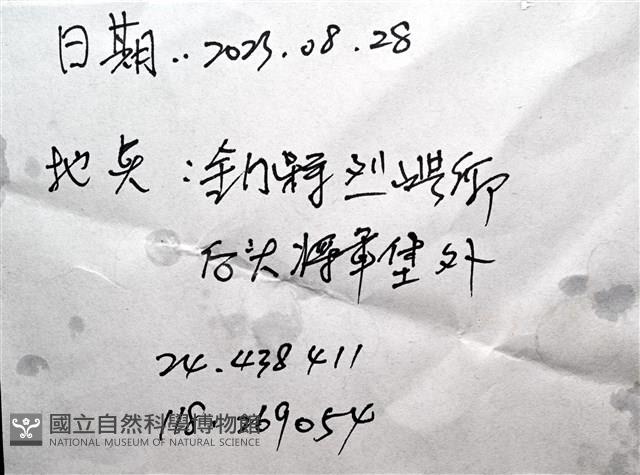 日期：2023.08.28
地点：金门縣烈嶼鄉
后头將軍堡外
24.438411
118.269054
國立自然科學博物館
NATIONAL MUSEUM OF NATURAL SCIENCE